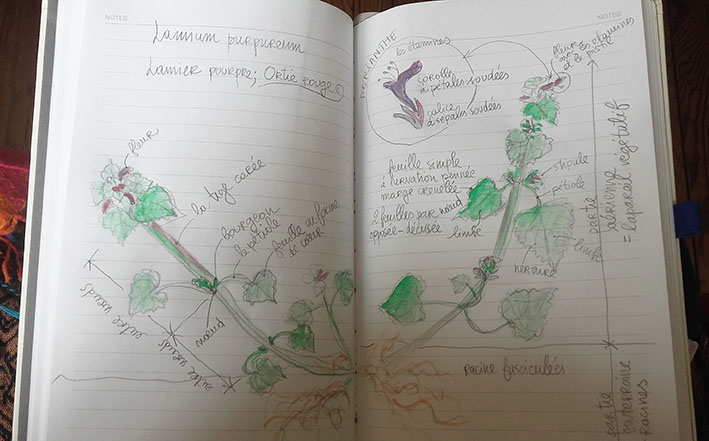 NOTES
Lamium purpureum
Lamier pourpre; Ortie rouge
fleur
la tige carée
bourgeon
le pétiole
feuille en forme
de cœur
entre nœuds
nœud
entre nœuds
NOTES
PÉRIANTHE
les étamines
corolle
à pétales soudées
calice
à sépales soudées
fleur
avec les étamines
et le pistil
feuille simple
à nervation pennée
marge crénellée
2 feuilles par nœud
opposée-décusée
limbe
stipule
pétiole
limbe
nervure
partie
aérienne
= l'appareil végétatif
racine fasciculées
partie
souterraine
racines